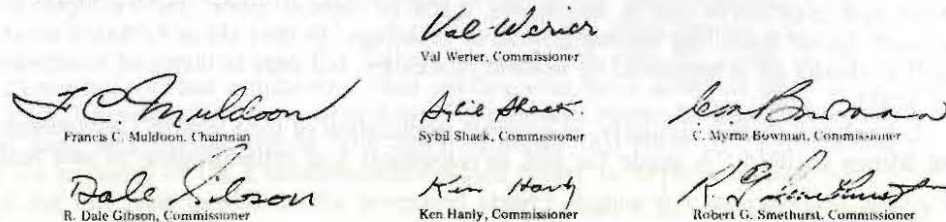 Val Werier
Val Werier, Commissioner
F C Muldoon
Francis C. Muldoon, Chairman
Sybil Shack
Sybil Shack, Commissioner
Bowman
C. Myrna Bowman, Commissioner
Dale Gibson
R. Dale Gibson, Commissioner
Ken Hanly
Ken Hanly, Commissioner
R G Smethurst
Robert G. Smethurst, Commissioner